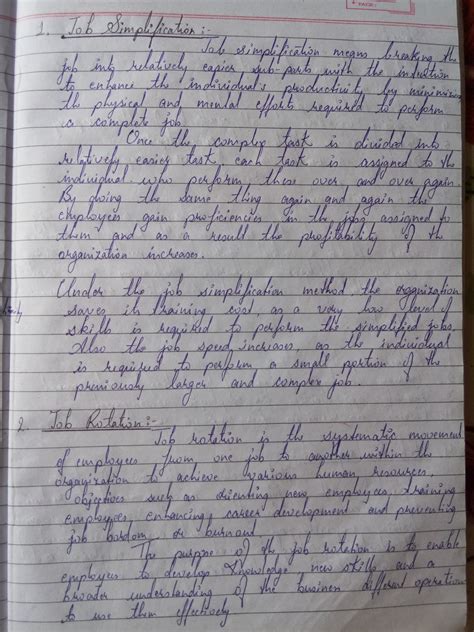 1. Job Simplification:-
Job simplification means breaking the
job into relatively easier sub-parts with the intention
to enhance the individual's productivity by minimizing
the physical and mental efforts required to perform
a complete job.
Once the complex task is divided into
relatively easier task, each task is assigned to the
individual who perform these over and over again.
By doing the same thing again and again the
employees gain proficiencies in the jobs assigned to
them and as a result the profitability of the
organization increases.
Under the job simplification method, the organization
saves its training cost, as a very low level of
skills is required to perform the simplified jobs.
Also the job speed increases, as the individual
is required to perform a small portion of the
previously larger and complex job.
2. Job Rotation:-
Job rotation is the systematic movement
of employees from one job to another within the
organization to achieve various human resources
objectives such as orienting new employees, training
employees, enhancing career development and preventing
job bordom or burnout.
The purpose of the job rotation is to enable
employees to develop knowledge new skills, and a
broader understanding of the business different operations
to use them effectively